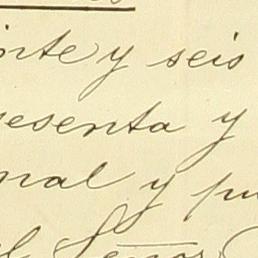 inte y seis
esenta y
nal y pu
el Señor